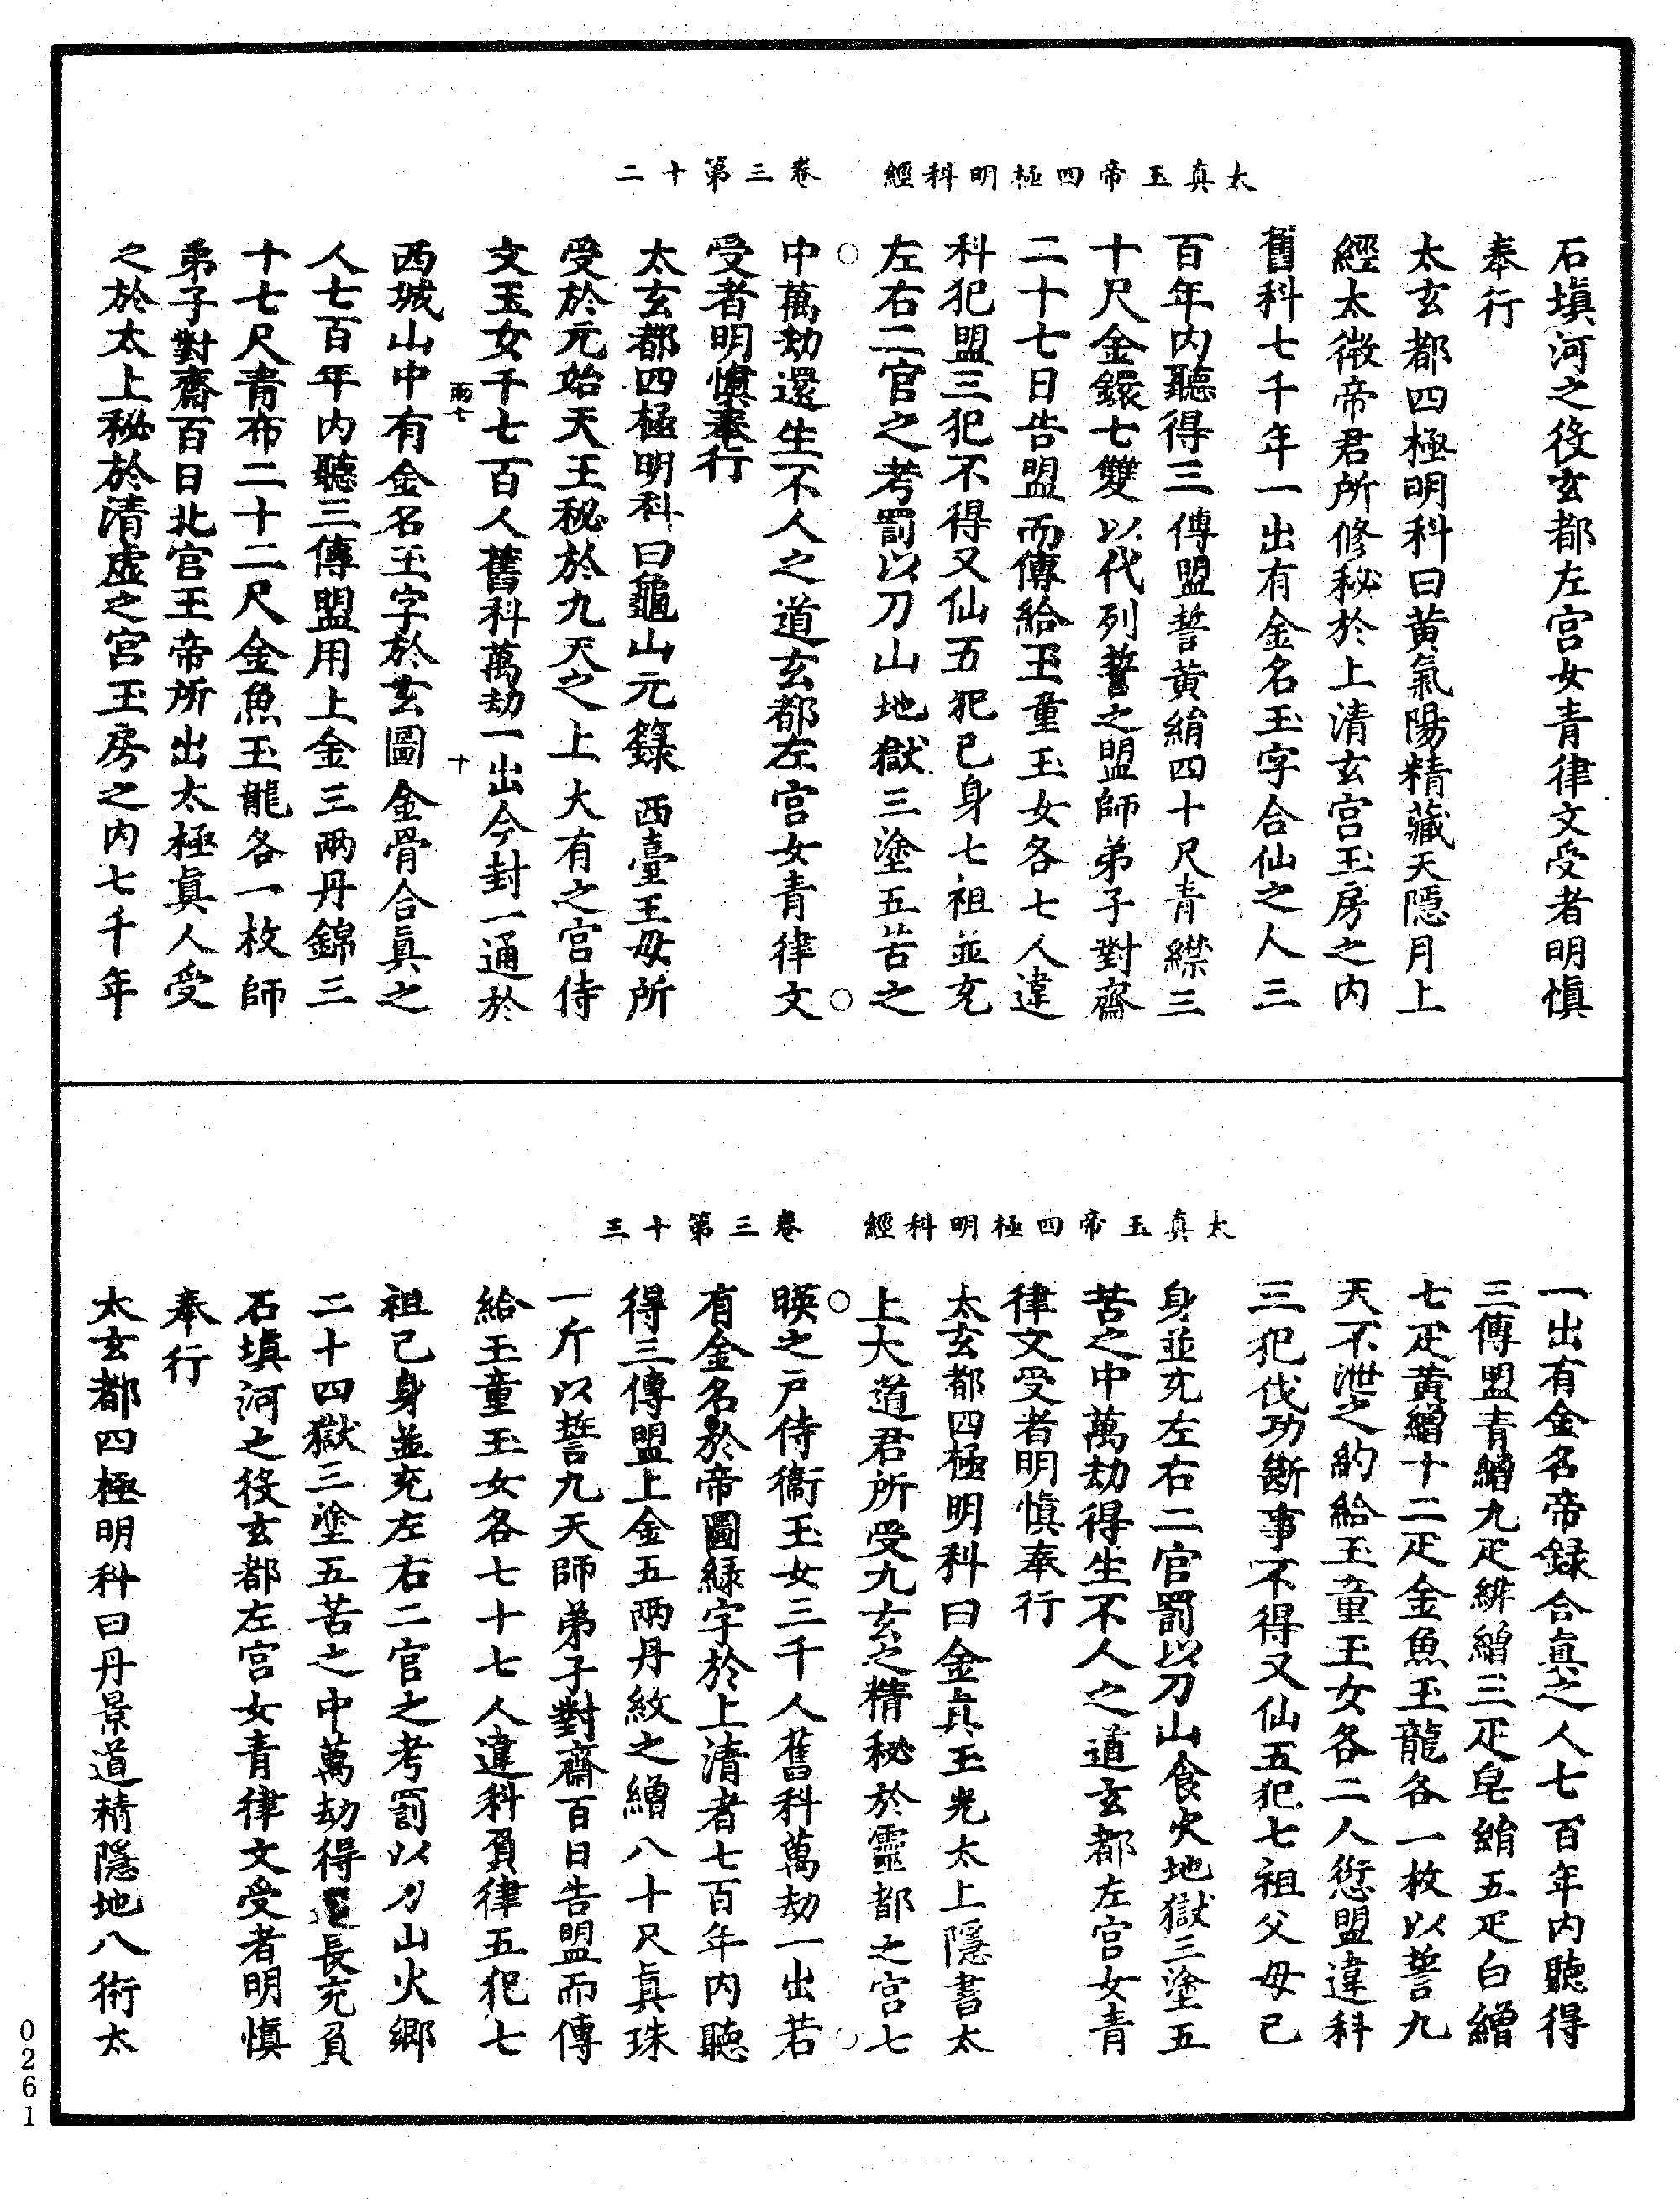 太真玉帝四極明科經　卷三第十二
石塡河之役玄都左宮女青律文受者明愼
奉行
太玄都四極明科曰黄氣陽精藏天隱月上
經太微帝君所修秘於上清玄宮玉房之内
舊科七千年一出有金名玉字合仙之人三
百年内聽得三傳盟誓黄絹四十尺青縩三
十尺金鐶七雙以代列誓之盟師弟子對齋
二十七日告盟而傳給玉童玉女各七人違
科犯盟三犯不得又仙五犯已身七祖並充
左右二官之考罰以刀山地獄三塗五苦之
中萬劫還生不人之道玄都左宮女青律文
受者明愼奉行
太玄都四極明科曰龜山元籙西臺王母所
受於元始天王秘於九天之上大有之宮侍
文玉女千七百人舊科萬劫一出今封一通於
雨七　十
西城山中有金名玉字於玄圖金骨合眞之
人七百年内聽三傳盟用上金三兩丹錦三
十七尺青布二十二尺金魚玉龍各一枚師
弟子對齋百日北宮玉帝所出太極眞人受
之於太上秘於清虛之宮玉房之内七千年
太真玉帝四極明科經　卷三第十三
一出有金名帝録合眞之人七百年内聽得
三傳盟青繒九疋緋繒三疋皂絹五疋白繒
七疋黄繒十二疋金魚玉龍各一枚以誓九
天不泄之約給玉童玉女各二人愆盟違科
三犯伐功斷事不得又仙五犯七祖父母已
身並充左右二官罰以刀山食火地獄三塗五
苦之中萬劫得生不人之道玄都左宮女青
律文受者明愼奉行
太玄都四極明科曰金真玉光太上隱書太
上大道君所受九玄之精秘於靈都之宮七
暎之戸侍衞玉女三千人舊科萬劫一出若
有金名於帝圖緑字於上清者七百年内聽
得三傳盟上金五兩丹紋之繒八十尺眞珠
一斤以誓九天師弟子對齋百日告盟而傳
給玉童玉女各七十七人違科負律五犯七
祖已身並充左右二官之考罰以刀山火鄉
二十四獄三塗五苦之中萬劫得還長充負
石塡河之役玄都左宮女青律文受者明愼
奉行
太玄都四極明科曰丹景道精隱地八術太
0261